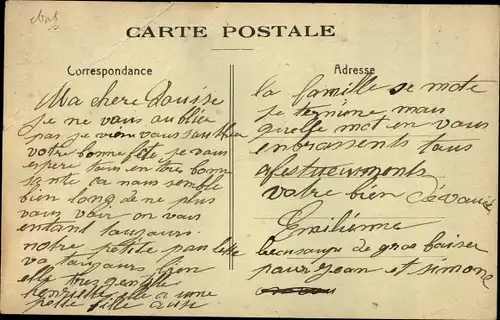 CARTE POSTALE
Correspondance
Ma chere Louise
je ne vous oublie
pas je viens vous
votre bonne fete je vous
espere tous en tres bonne
sante ca nous semble
bien long de ne plus
vous voir on vous
entant toujours
notre petite
va toujours bien
elle tres gentille
henriette elle a une
petite fille aussi
Adresse
la famille se
je termine mais
quelle mot en vous
enbrassents tous
afestueusements
votre bien dévoué
Emilienne
beaucoups de gros baiser
pour jean et simone